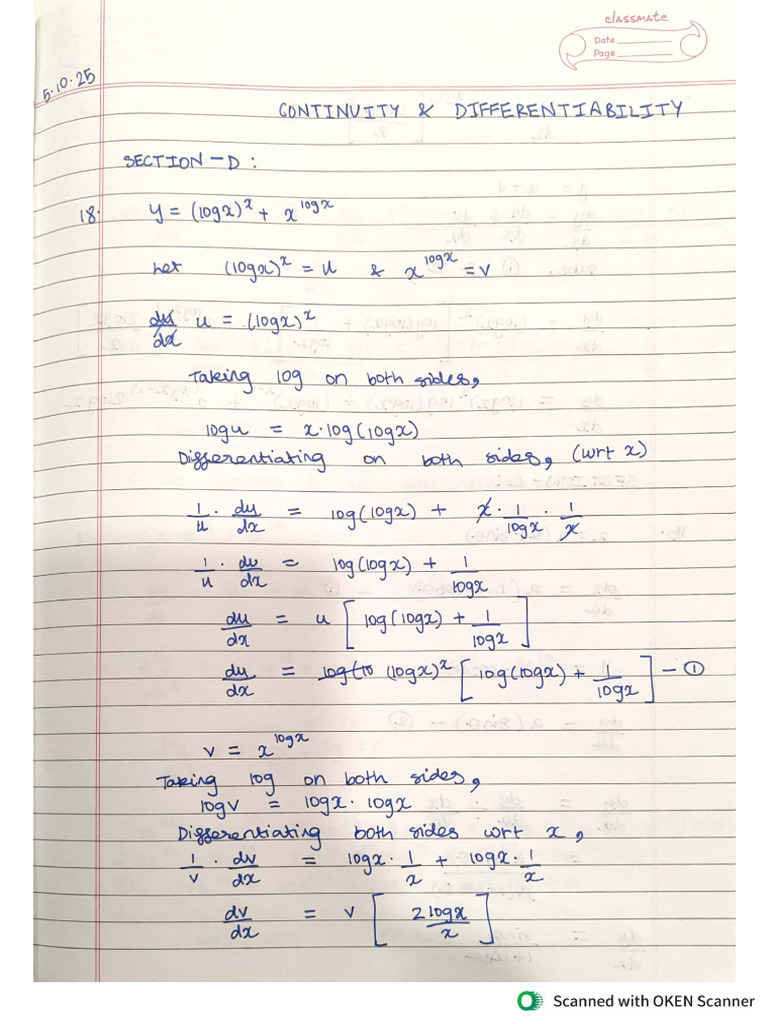 classmate
Date
Page
5.10.25
CONTINUITY & DIFFERENTIABILITY
SECTION-D:
18. y = (logx)^x + x^logx
Let (logx)^x = u & x^logx = v
du/dx u = (logx)^x
Taking log on both sides,
logu = x·log(logx)
Differentiating on both sides, (wrt x)
1/u · du/dx = log(logx) + x · 1/logx · 1/x
1/u · du/dx = log(logx) + 1/logx
du/dx = u [ log(logx) + 1/logx ]
du/dx = (logx)^x [ log(logx) + 1/logx ] - ①
v = x^logx
Taking log on both sides,
logv = logx · logx
Differentiating both sides wrt x,
1/v · dv/dx = logx · 1/x + logx · 1/x
dv/dx = v [ 2logx/x ]
Scanned with OKEN Scanner